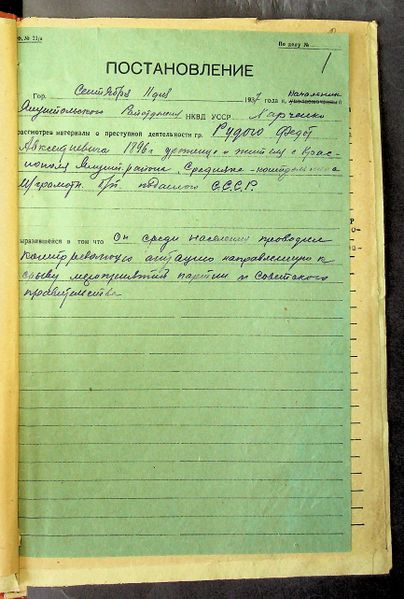 Ф. № 23/а
По делу №
1
ПОСТАНОВЛЕНИЕ
Гор. Сентября дня 1937 года я, Начальник
Райотделения НКВД УССР Марченко
рассмотрев материалы о преступной деятельности гр. Рудого Федот
Авкседиевича 1896 г урожинец и житель с
района,
б/п. подданого С.С.С.Р.
выразившейся в том что Он среди населения проводил
контрреволюц агитацию направленную к
срыву мероприятий партии и Советского
правительства